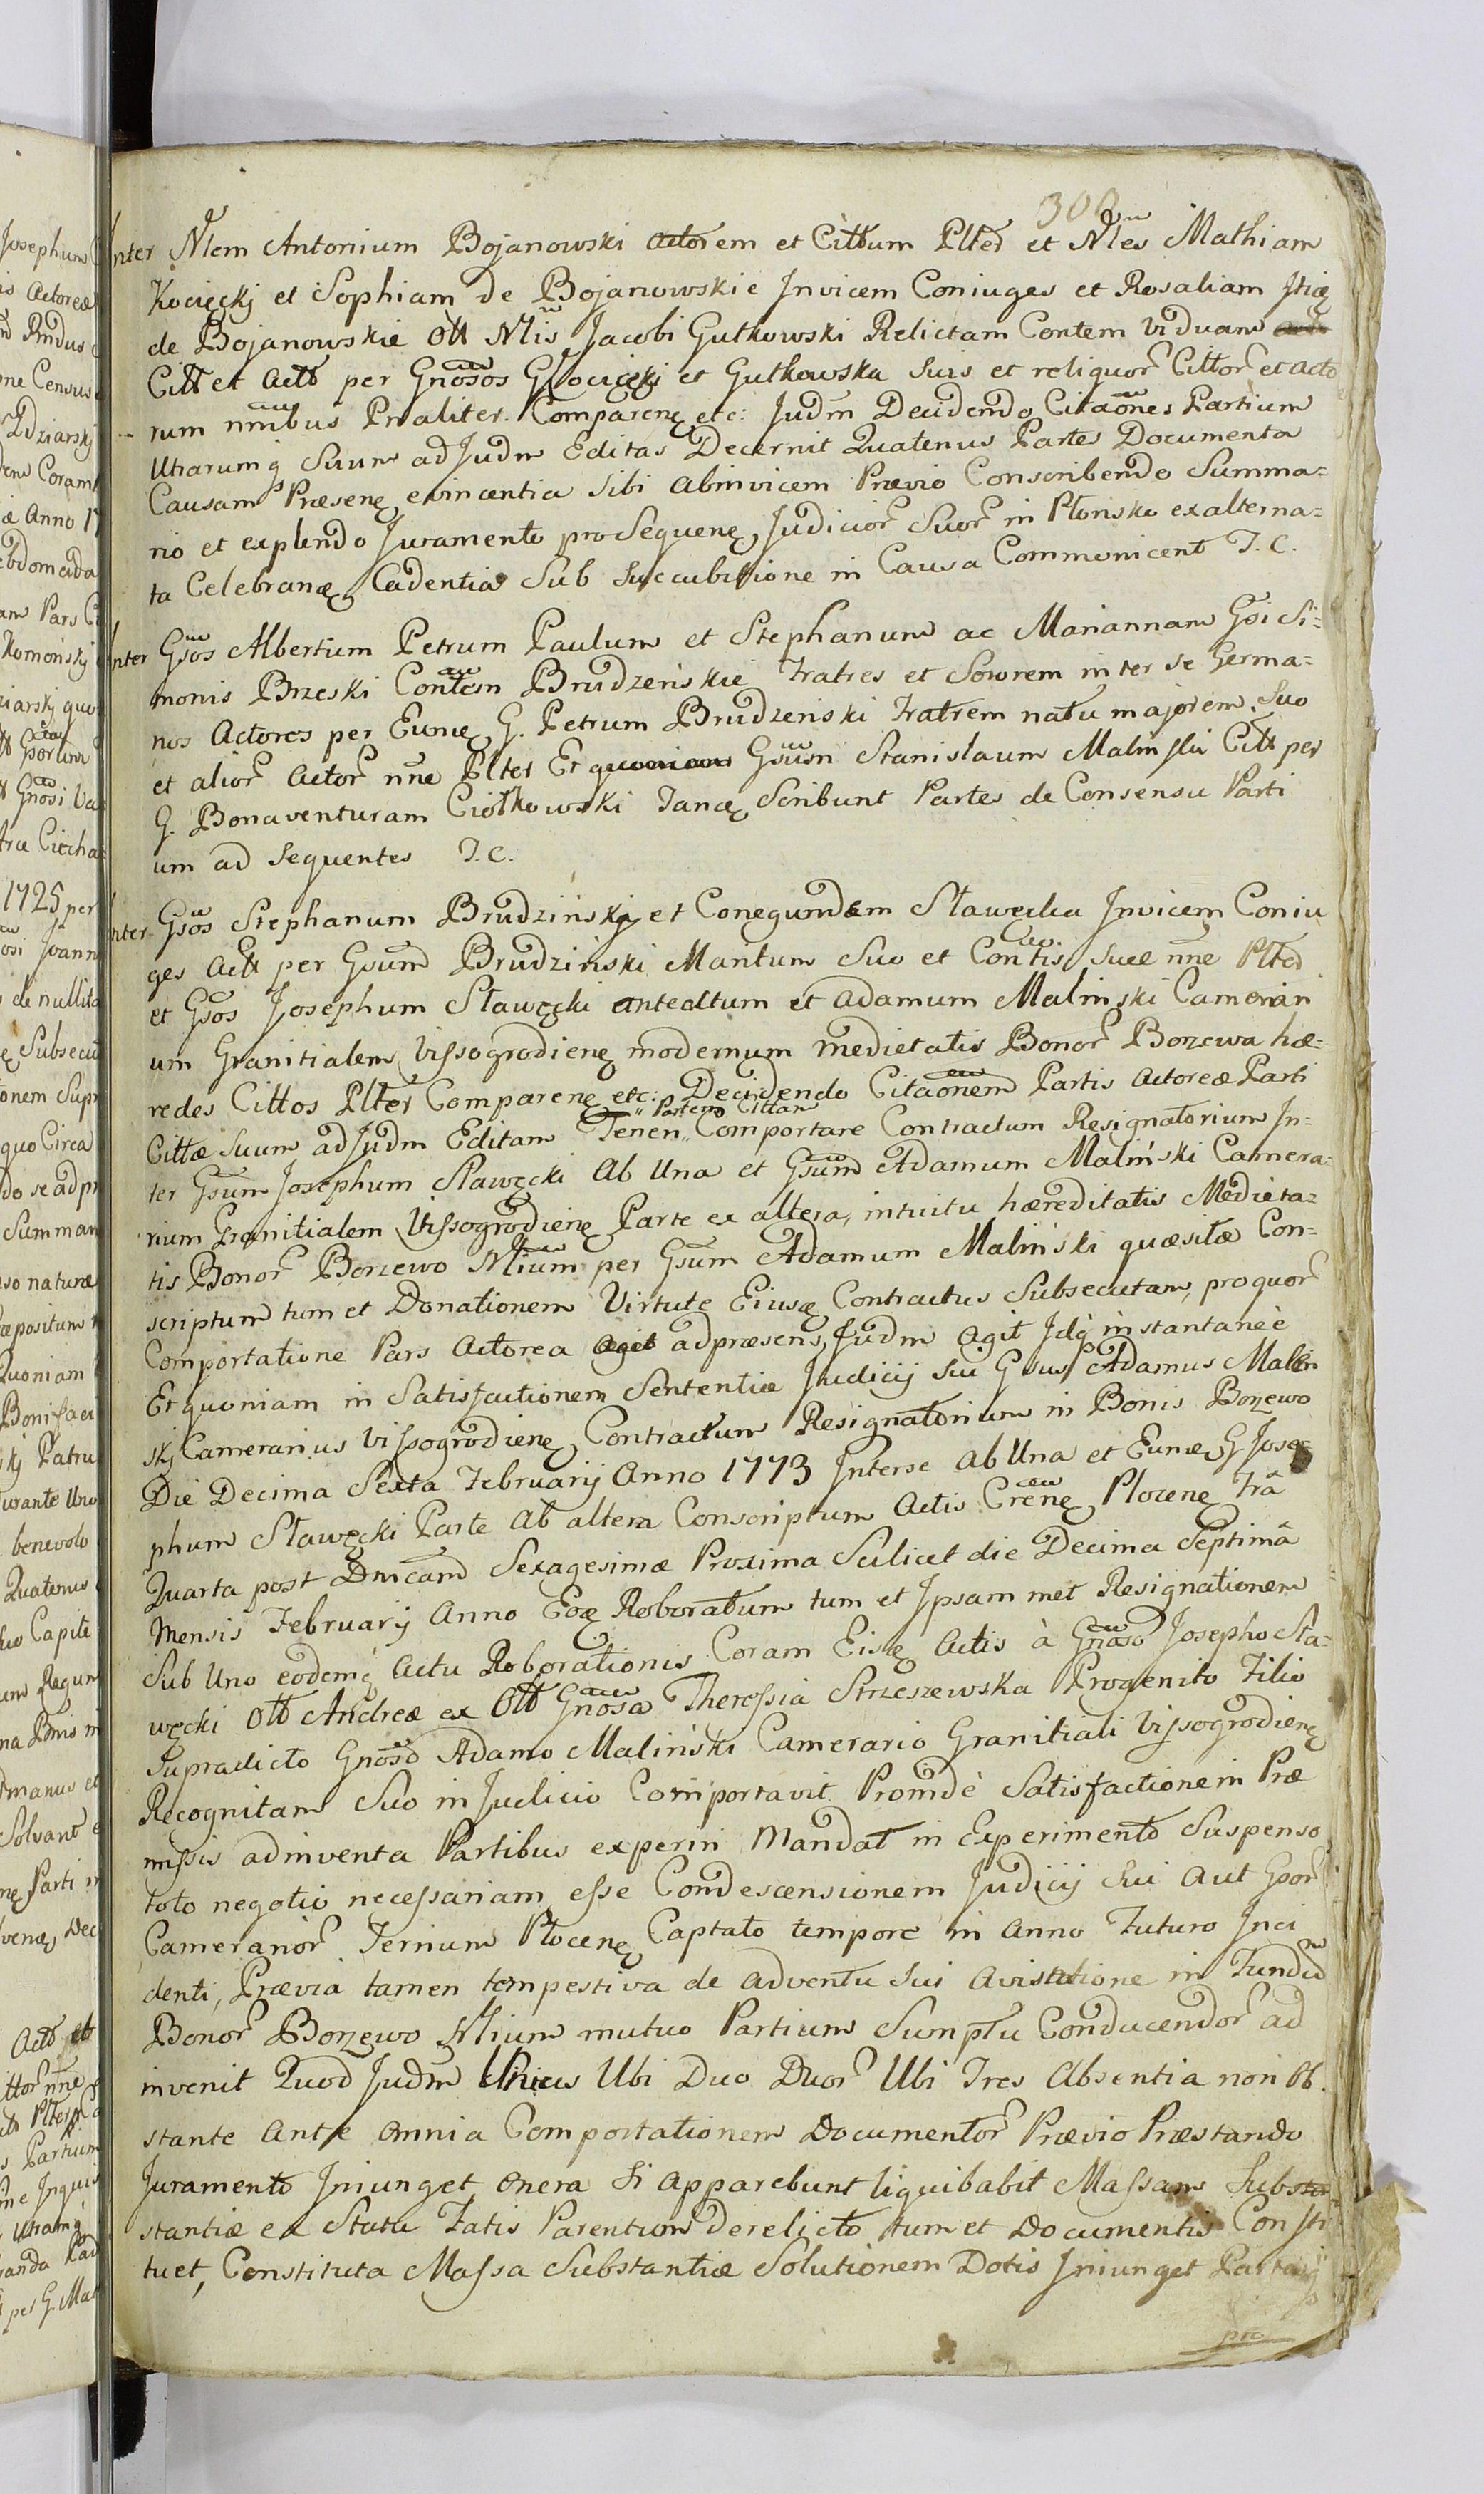 300
Inter Nlem Antonium Bojanowski Actorem et Cittum Plter et Nles Mathiam
Kocięckj et Sophiam de Bojanowskie Invicem Coniuges et Rosaliam Itię
de Bojanowskie Ott Nlis Jacobi Gutkowski Relictam Contem Viduam
Citt et Actt per Gnosos G Kocięckj et Gutkowska Suis et reliquor Cittor et acto
rum nnibus Pnaliter. Comparenę etc: Judm Decidendo Citaones Partium
Utrarumq Suum ad Judm Editas Decernit Quatenus Partes Documenta
Causam Præsenę evincentia Sibi abinvicem Prævio Conscribendo Summa=
rio et explendo Juramento pro Sequenę Judicior Suor in Płonsko exalterna=
ta Celebranę Cadentia Sub Succubitione in Causa Communicent T. C.
Inter Gsos Albertum Petrum Paulum et Stephanum ac Mariannam Gsi Si=
monis Brzeski Contem Brudzeńskie Fratres et Sororem inter se Germa=
nos Actores per Eunę G. Petrum Brudzenski Fratrem natu majorem Suo
et alior Actor nne Plter Et quoniam Gsum Stanislaum Malinski Citt per
G. Bonaventuram Ciółkowski Tanę Scribunt Partes de Consensu Parti
um ad Sequentes T. C.
Inter Gsos Stephanum Brudzińskj et Conegundem Sławecka Invicem Coniu
ges Actt per Gsum Brudziński Maritum Suo et Contis Suæ nne Plter
et Gsos Josephum Sławęcki anteactum et Adamum Malinski Camerari
um Granitialem Vissogrodienę modernum Medietatis Bonor Borzewa hæ=
redes Cittos Plter Comparenę etc: Decidendo Citaonem Partis Actoreæ Parti
Cittæ Suum ad Judm Editam Tenen " Partem Cittam Comportare Contractum Resignatorium In=
ter Gsum Josephum Sławęcki Ab Una et Gsum Adamum Maliński Camera=
rium Granitialem Vissogrodienę Parte ex altera, intuitu hæreditatis Medieta=
tis Bonor Borzewo Nlium per Gsum Adamum Maliński quæsitæ Con=
scriptum tum et Donationem Virtute Eiusę Contractus Subsecutam, pro quor
Comportatione Pars Actorea agit adpræsens, Judm Agit Idq instantaneè
Et quoniam in Satisfactionem Sententiæ Judicij Sui Gsus Adamus Malin
skj Camerarius Vissogrodienę Contractum Resignatorium in Bonis Borzewo
Die Decima Sexta Februarij Anno 1773 Interse ab Una et Eunę G. Jose
phum Sławęcki Parte ab altera Conscriptum Actis Crenę Plocenę Fra
Quarta post Dnicam Sexagesimæ Proxima Scilicet die Decima Septimâ
Mensis Februarij Anno Eoę Roboratum tum et Ipsam met Resignationem
Sub Uno eodemq Actu Roborationis Coram Eisę Actis à Gnoso Josepho Sła=
węcki Ott Andreæ ex Ott Gnosa Theressia Strzeszewska Progenito Filio
Supradicto Gnoso Adamo Maliński Camerario Granitiali Vissogrodienę
Recognitam Suo in Judicio Comportavit Proindè Satisfactionem Præ
missis adinventa Partibus experiri Mandat in Experimento Suspenso
toto negotio necessariam esse Condescensionem Judicij Sui Aut Gsor
Camerarior Ternum Plocenę Captato tempore in Anno Futuro Inci
denti, Prævia tamen tempestiva de adventu Sui Avisatione in Fundum
Bonor Borzewo Nlium mutuo Partium Sumptu Conducendor ad
invenit Quod Judm Unius Ubi Duo Duor Ubi Tres Absentia non Ob.
stante Ante omnia Comportationem Documentor Prævio Præstando
Juramento Iniunget onera Si apparebunt liquibabit Massam Subs
stantiæ ex Statu Fatis Parentum derelicto tum et Documentis Consti
tuet, Constituta Massa Substantiæ Solutionem Dotis Iniunget
pro